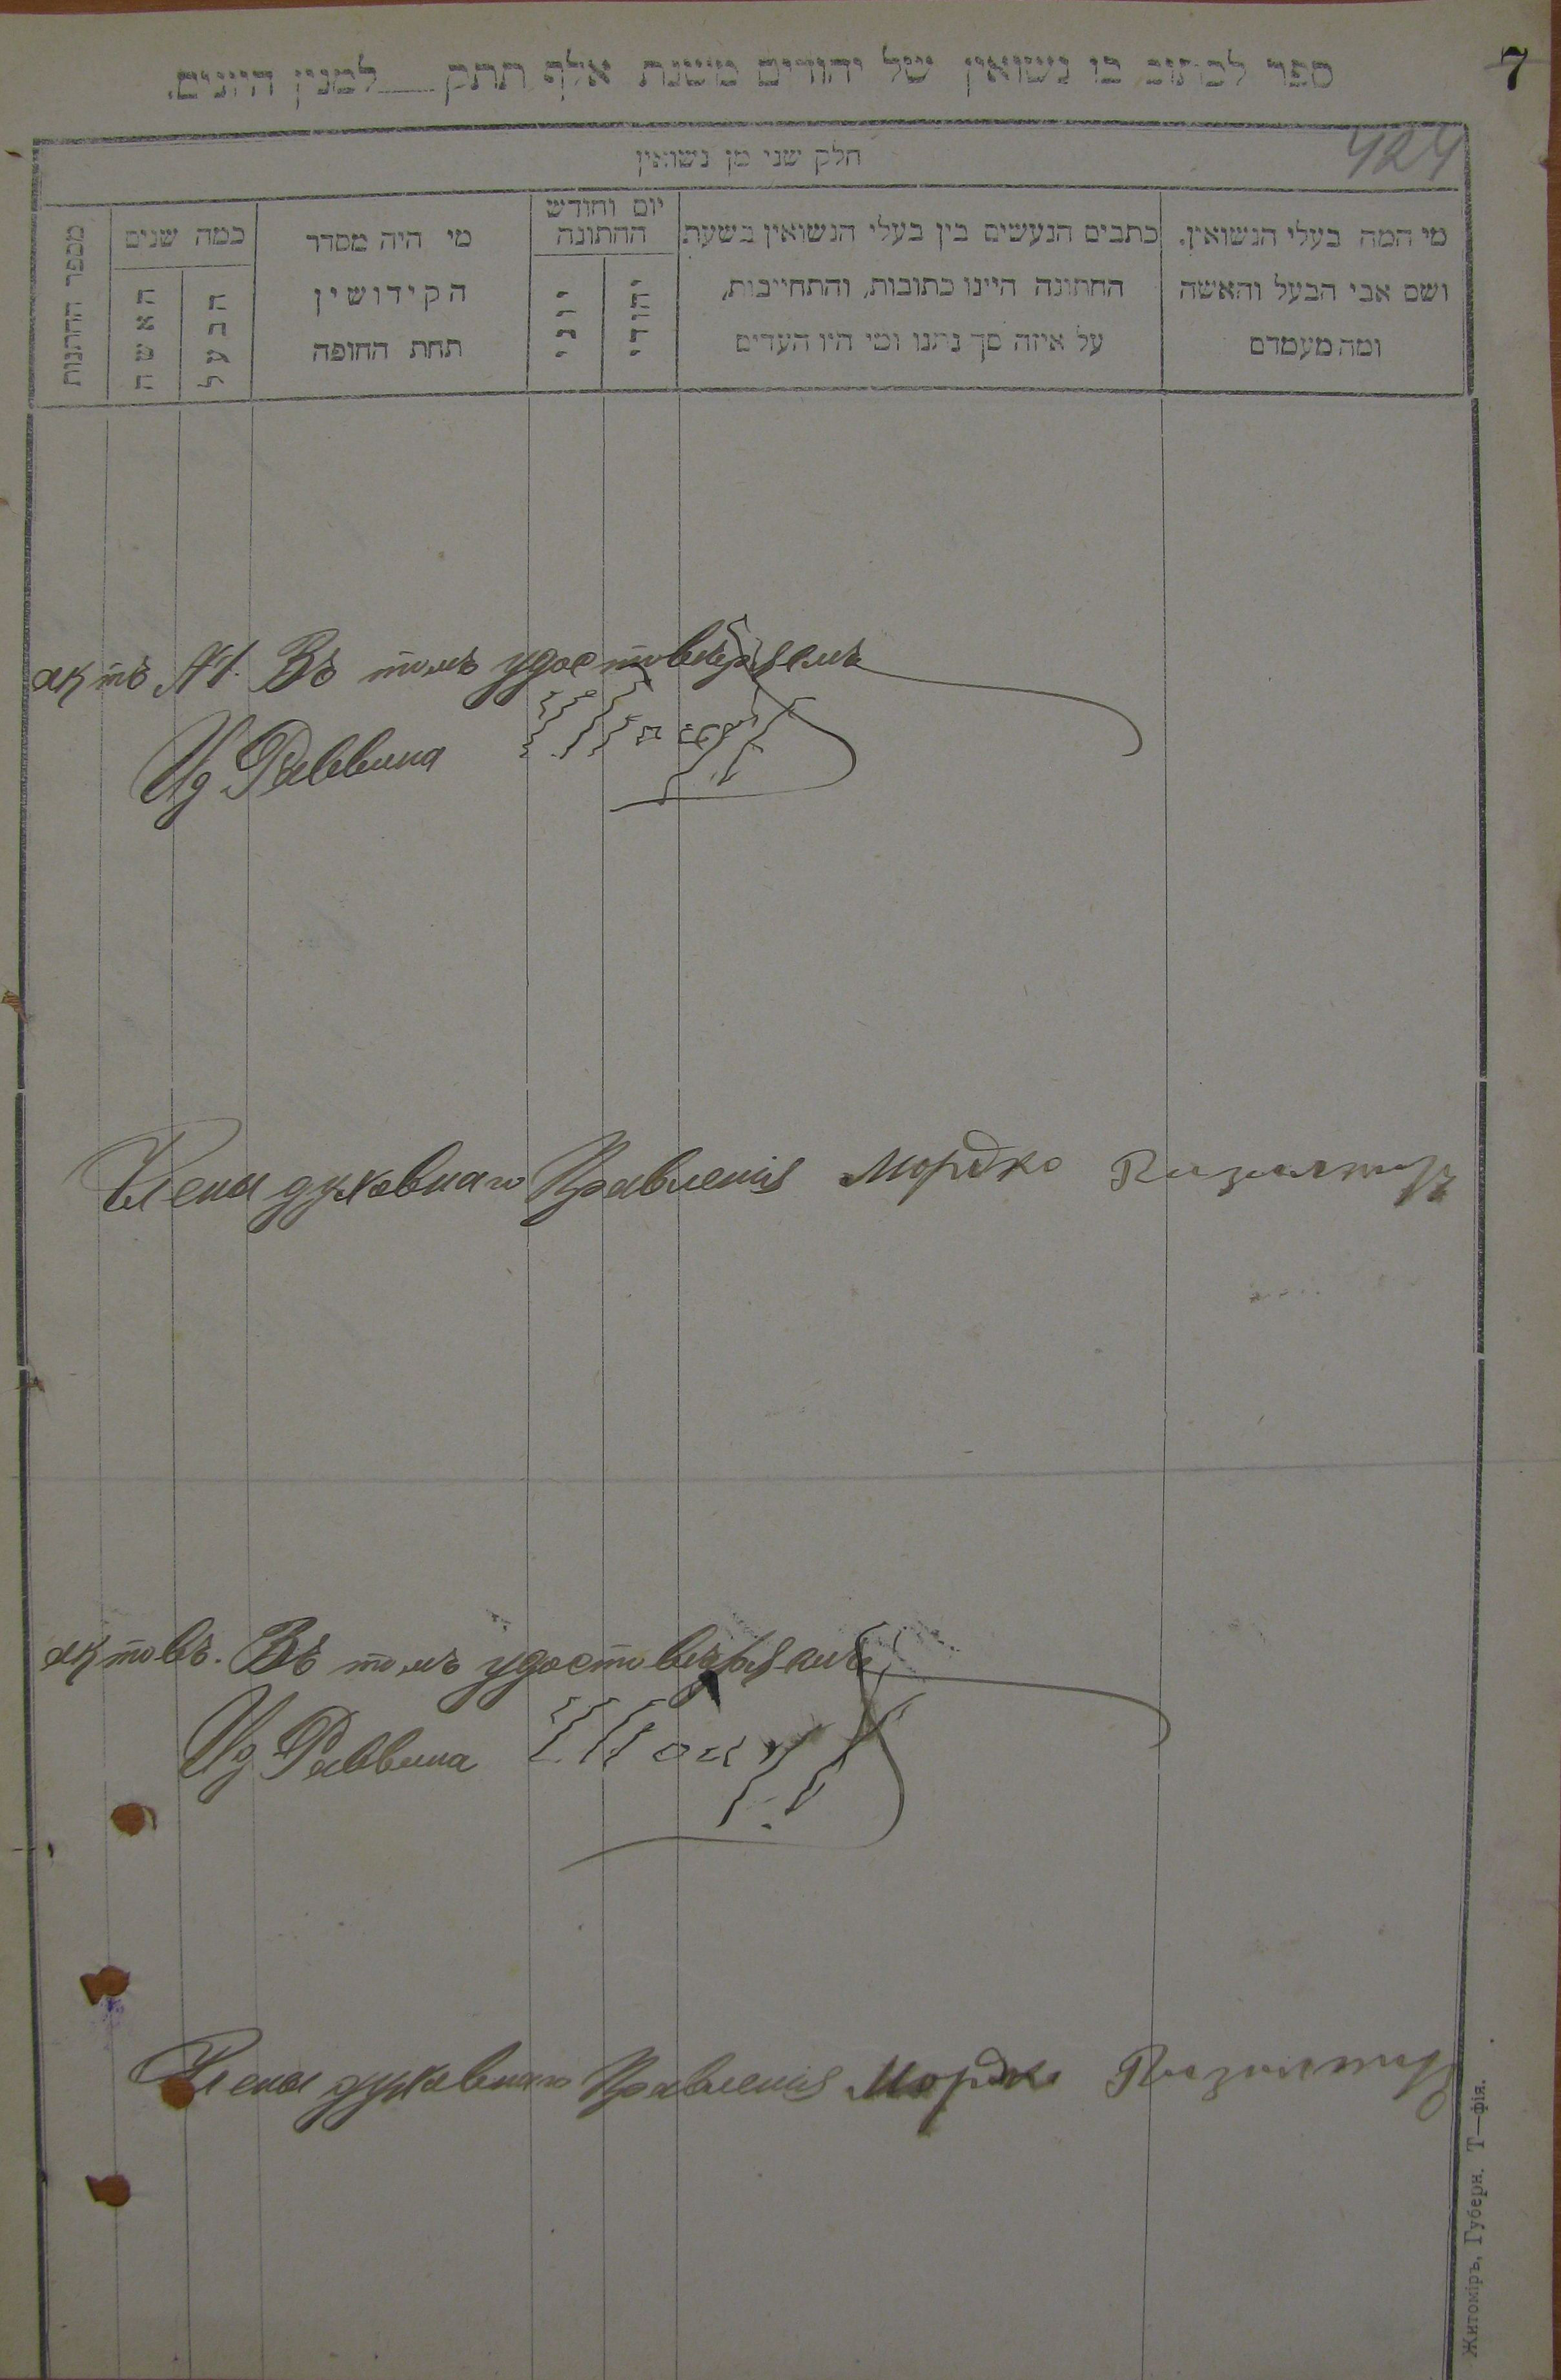 7
ספר לכתוב בו נשואין של יהודים משנת אלף תתק למנין היונים.
424
חלק שני מן נשואין
מי המה בעלי הנשואין,
ושם אבי הבעל והאשה
ומה מעמדם
כתבים הנעשים בין בעלי הנשואין בשעת
החתונה היינו כתובות, והתחייבות,
על איזה סך נתנו ומי היו העדים
יום וחודש
החתונה
יהודי
יוני
מי היה מסדר
הקידושין
תחת החופה
כמה שנים
הבעל
האשה
מספר החתנות
актъ №1. Въ томъ удостовѣряемъ
Ид Раввина
Члены духовнаго Правленія Мордко
актовъ. Въ томъ удостовѣряемъ
Ид Раввина
Члены духовнаго Правленія Мордко
Житоміръ, Губерн. Т—фія.